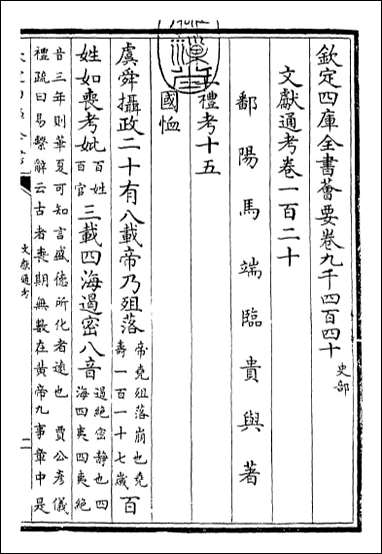 欽定四庫全書薈要卷九千四百四十 史部
文獻通考卷一百二十
鄱陽馬端臨貴與著
禮考十五
國恤
虞舜攝政二十有八載帝乃殂落帝堯殂落崩也堯壽一百一十七歲百
姓如喪考妣百姓百官三載四海遏密八音遏絕密静也四海四夷四夷絕
音三年則華夏可知言盛德所化者遠也 賈公彥儀
禮疏曰易繫辭云古者喪期無數在黄帝九事章中是
文獻通考